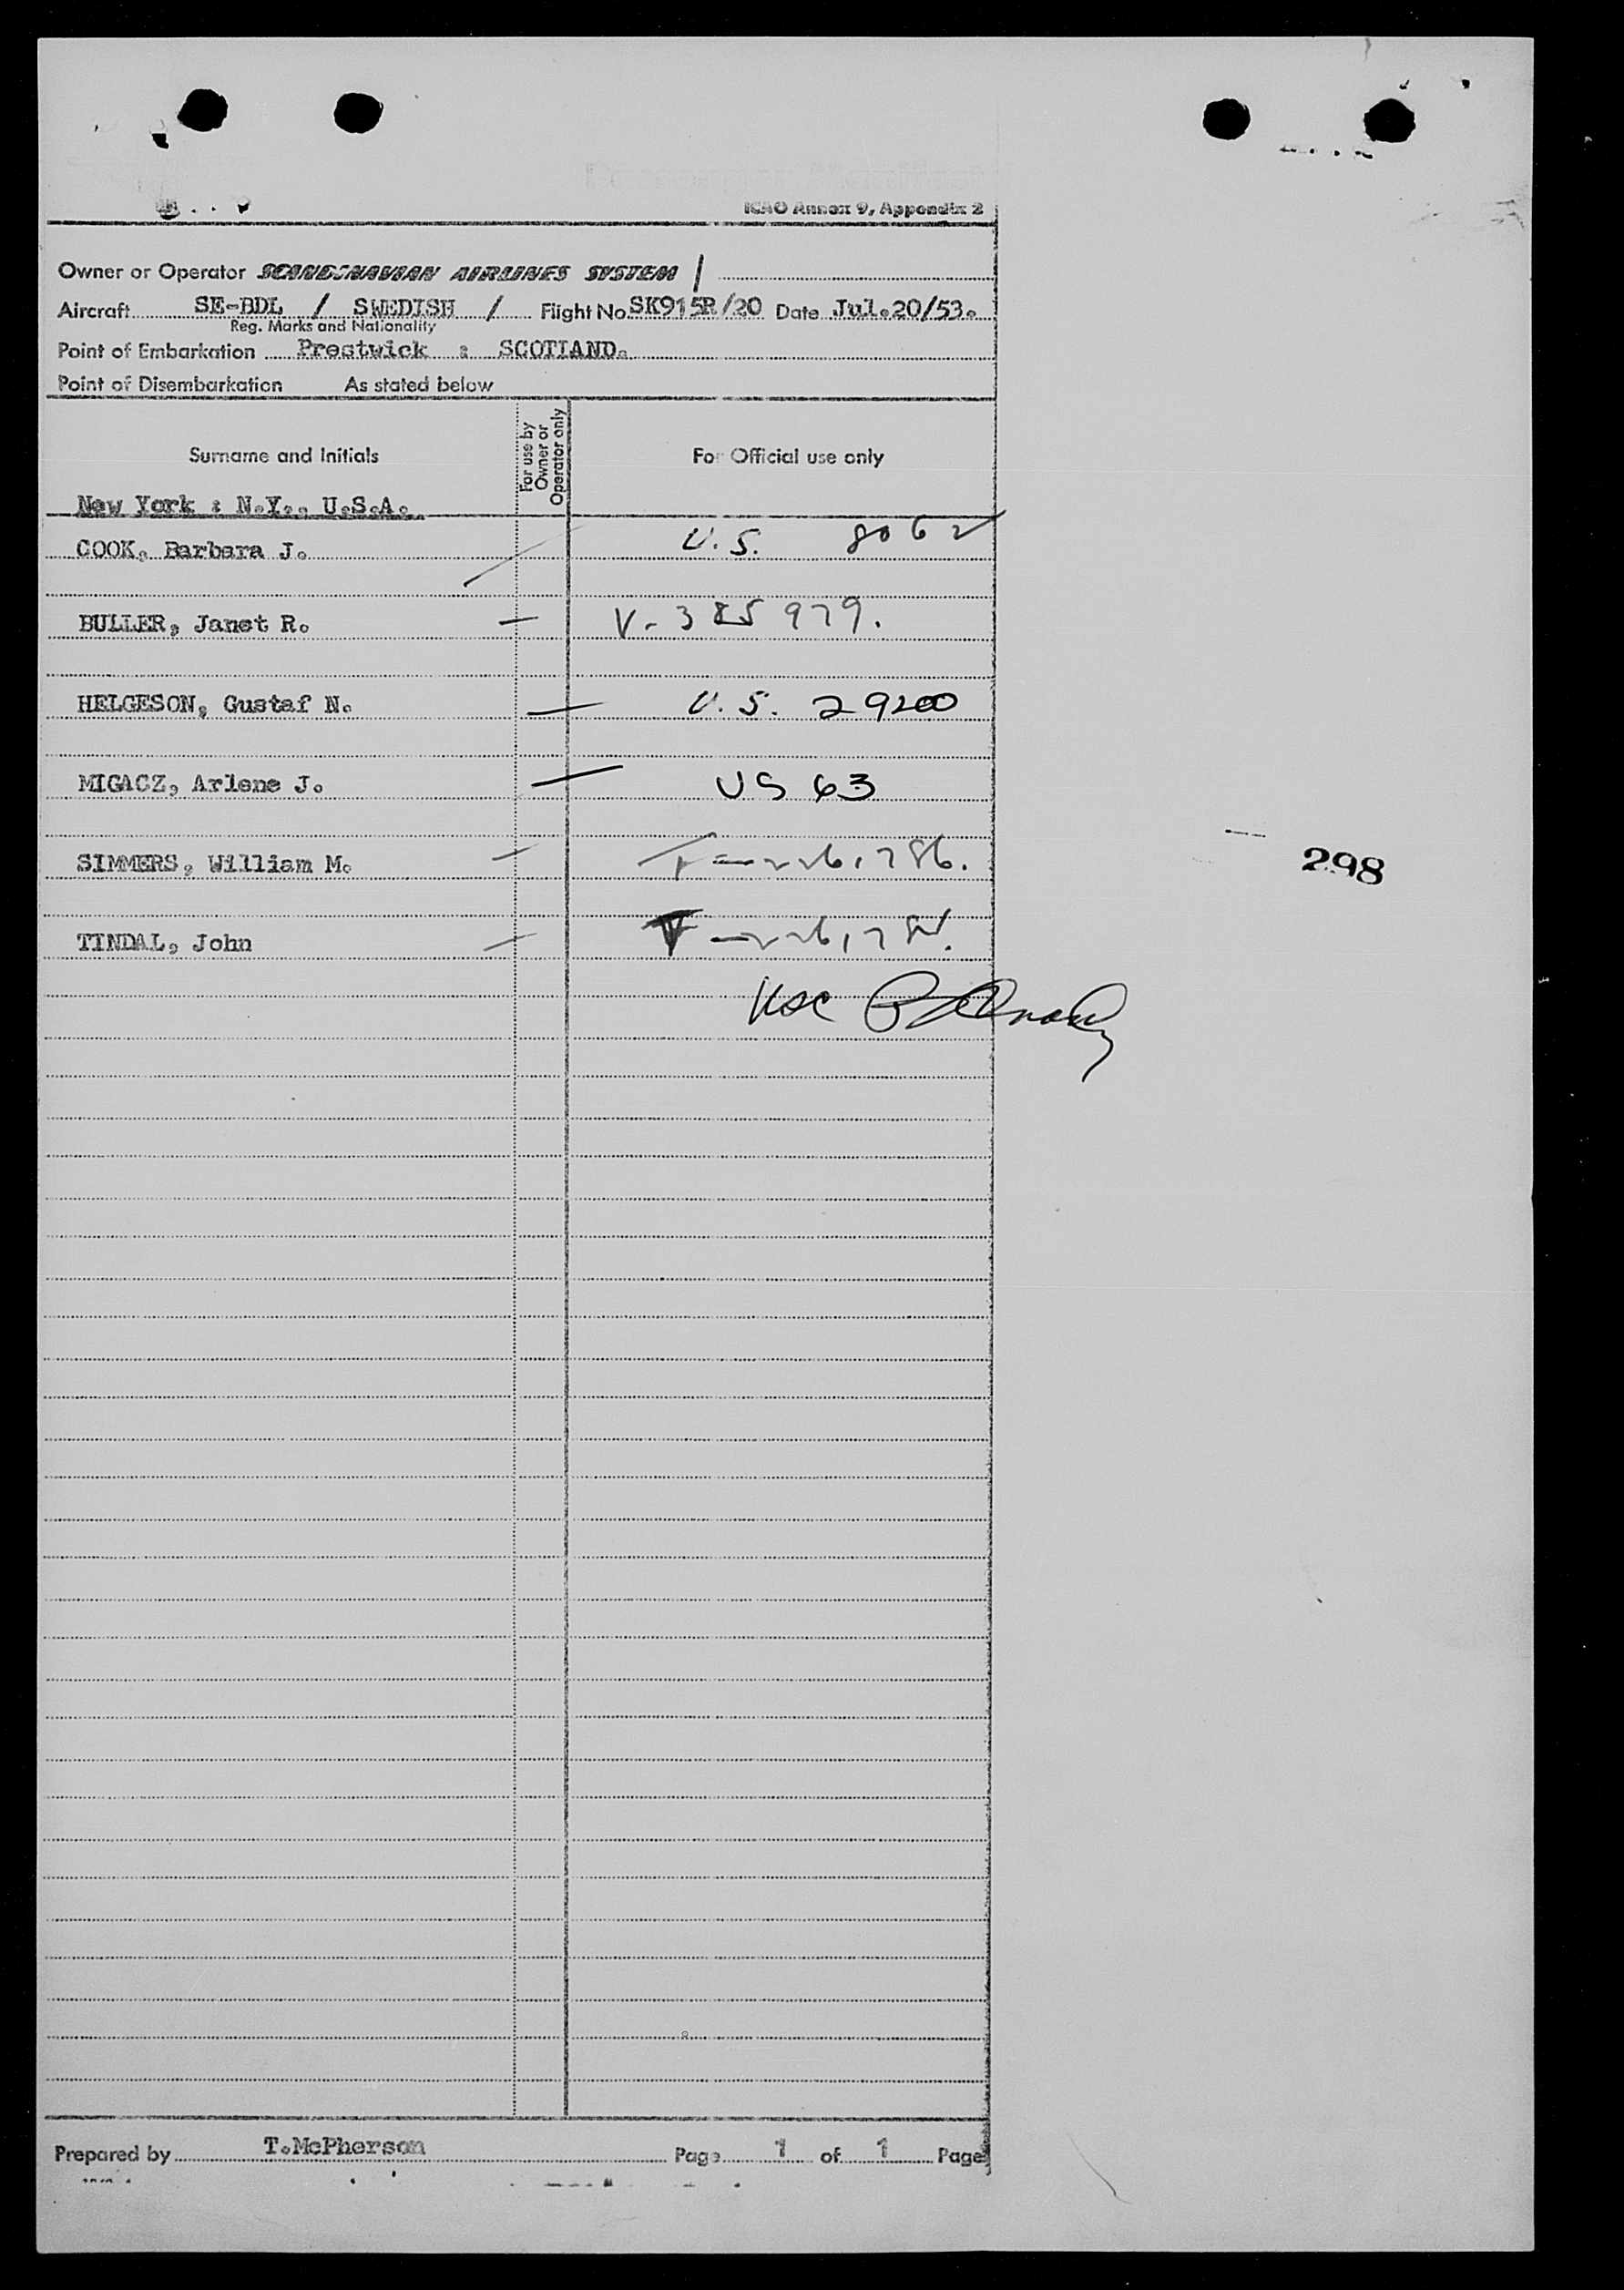 ICAO Annex 9, Appendix 2
Owner or Operator SCANDINAVIAN AIRLINES SYSTEM /
Aircraft SE-BDL / SWEDISH / Flight No SK915R/20 Date Jul.20/53.
Reg. Marks and Nationality
Point of Embarkation Prestwick : SCOTLAND.
Point of Disembarkation As stated below
Surname and Initials
For use by Owner or Operator only
For Official use only
New York : N.Y., U.S.A.
COOK, Barbara J. U.S. 8062
BULLER, Janet R. V-385979.
HELGESON, Gustaf N. U.S. 29200
MIGACZ, Arlene J. US 63
SIMMERS, William M.
298
TINDAL, John
Prepared by T.McPherson Page 1 of 1 Page